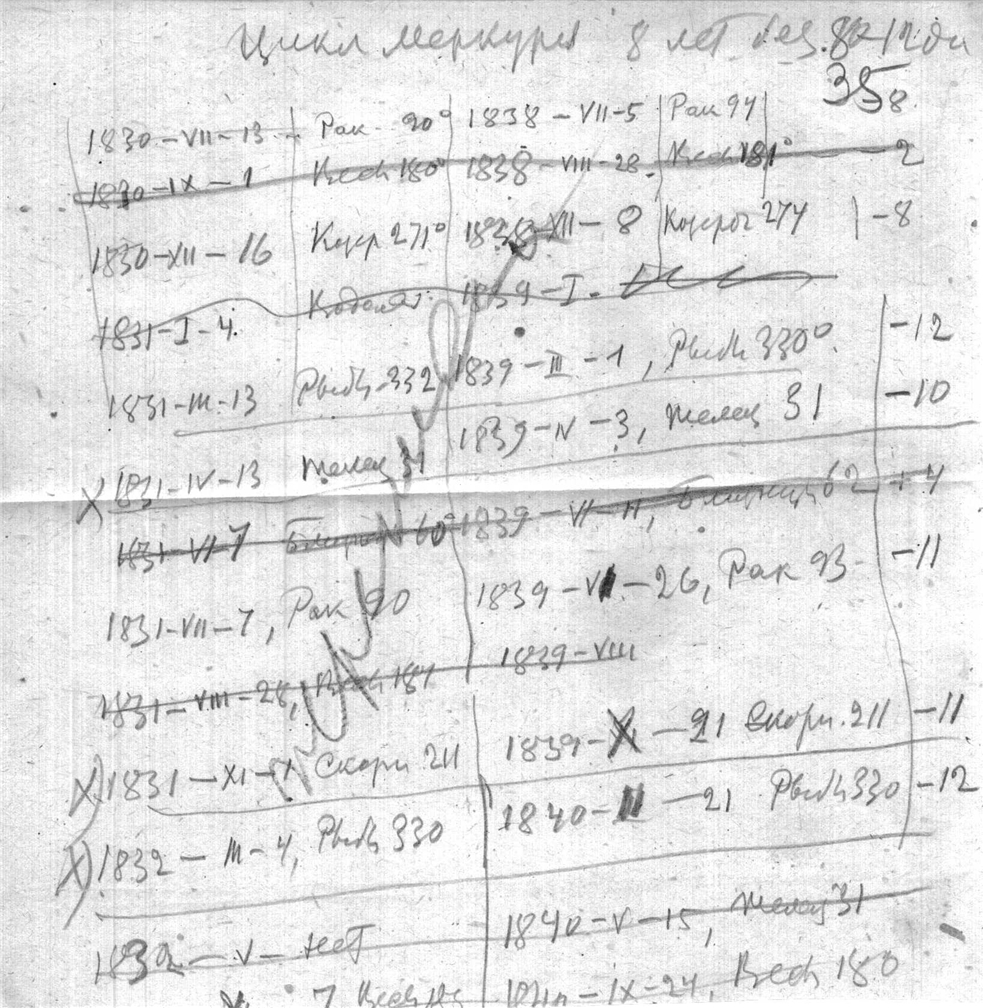 Цикл Меркурия 8 лет без 8 к 12 дн
358
1830-VII-13 Рак 90° 1838-VII-5 Рак 94
1830-IX-1 Весы 180° 1838-VIII-28 Весы 181° -2
1830-XII-16 Козер 271° 1838-XII-8 Козерог 274 -8
1831-I-4 1839-I-
1831-III-13 Рыбы 332 1839-III-1, Рыбы 330° -12
X 1831-IV-13 Телец 31 1839-IV-3, Телец 31 -10
1831-VI-7 Близнец 60° 1839-VI-11, Близнец 62 +4
1831-VII-7, Рак 90 1839-VI-26, Рак 93 -11
1831-VIII-28, Весы 181 1839-VIII
X) 1831-XI-1 Скорп 211 1839-X-21 Скорп. 211 -11
X) 1832-III-4, Рыбы 330 1840-II-21 Рыбы 330 -12
1832-V-нет 1840-V-15, Телец 31
7 Весы 1840-IX-24, Весы 180